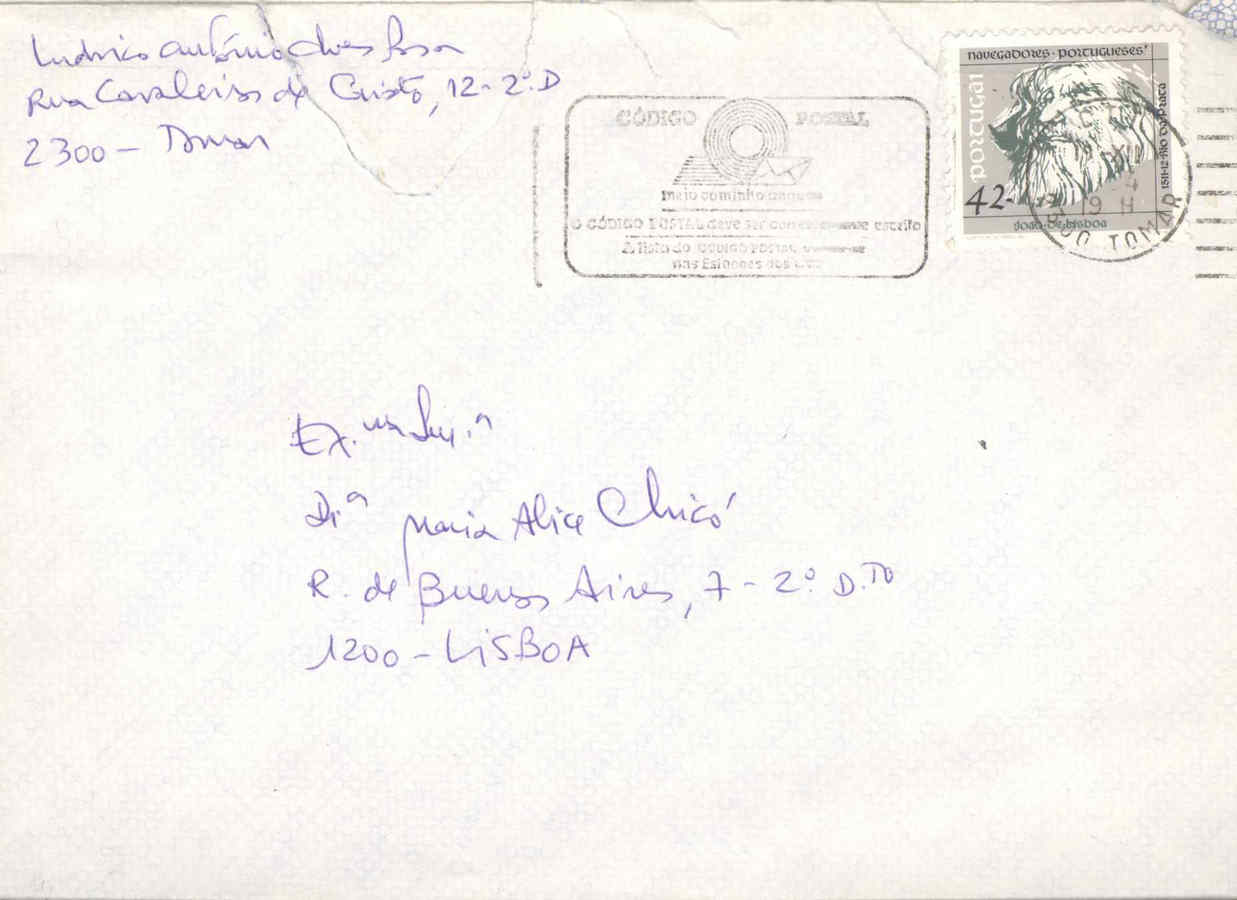 António Alves Rosa
Rua Cavaleiros de Cristo, 12-2º.D
2300 - Tomar
CÓDIGO POSTAL
meio caminho andado
O CÓDIGO POSTAL deve ser escrito
A lista do CODIGO POSTAL
nas Estações dos CTT
navegadores · portugueses
portugal
1511-12·RIO DA PRATA
42-
JOÃO·DE·LISBOA
TOMAR
19 H
Ex.ma Sr.ª
Drª Maria Alice Chicó
R. de Buenos Aires, 7 - 2º D.TO
1200 - LISBOA